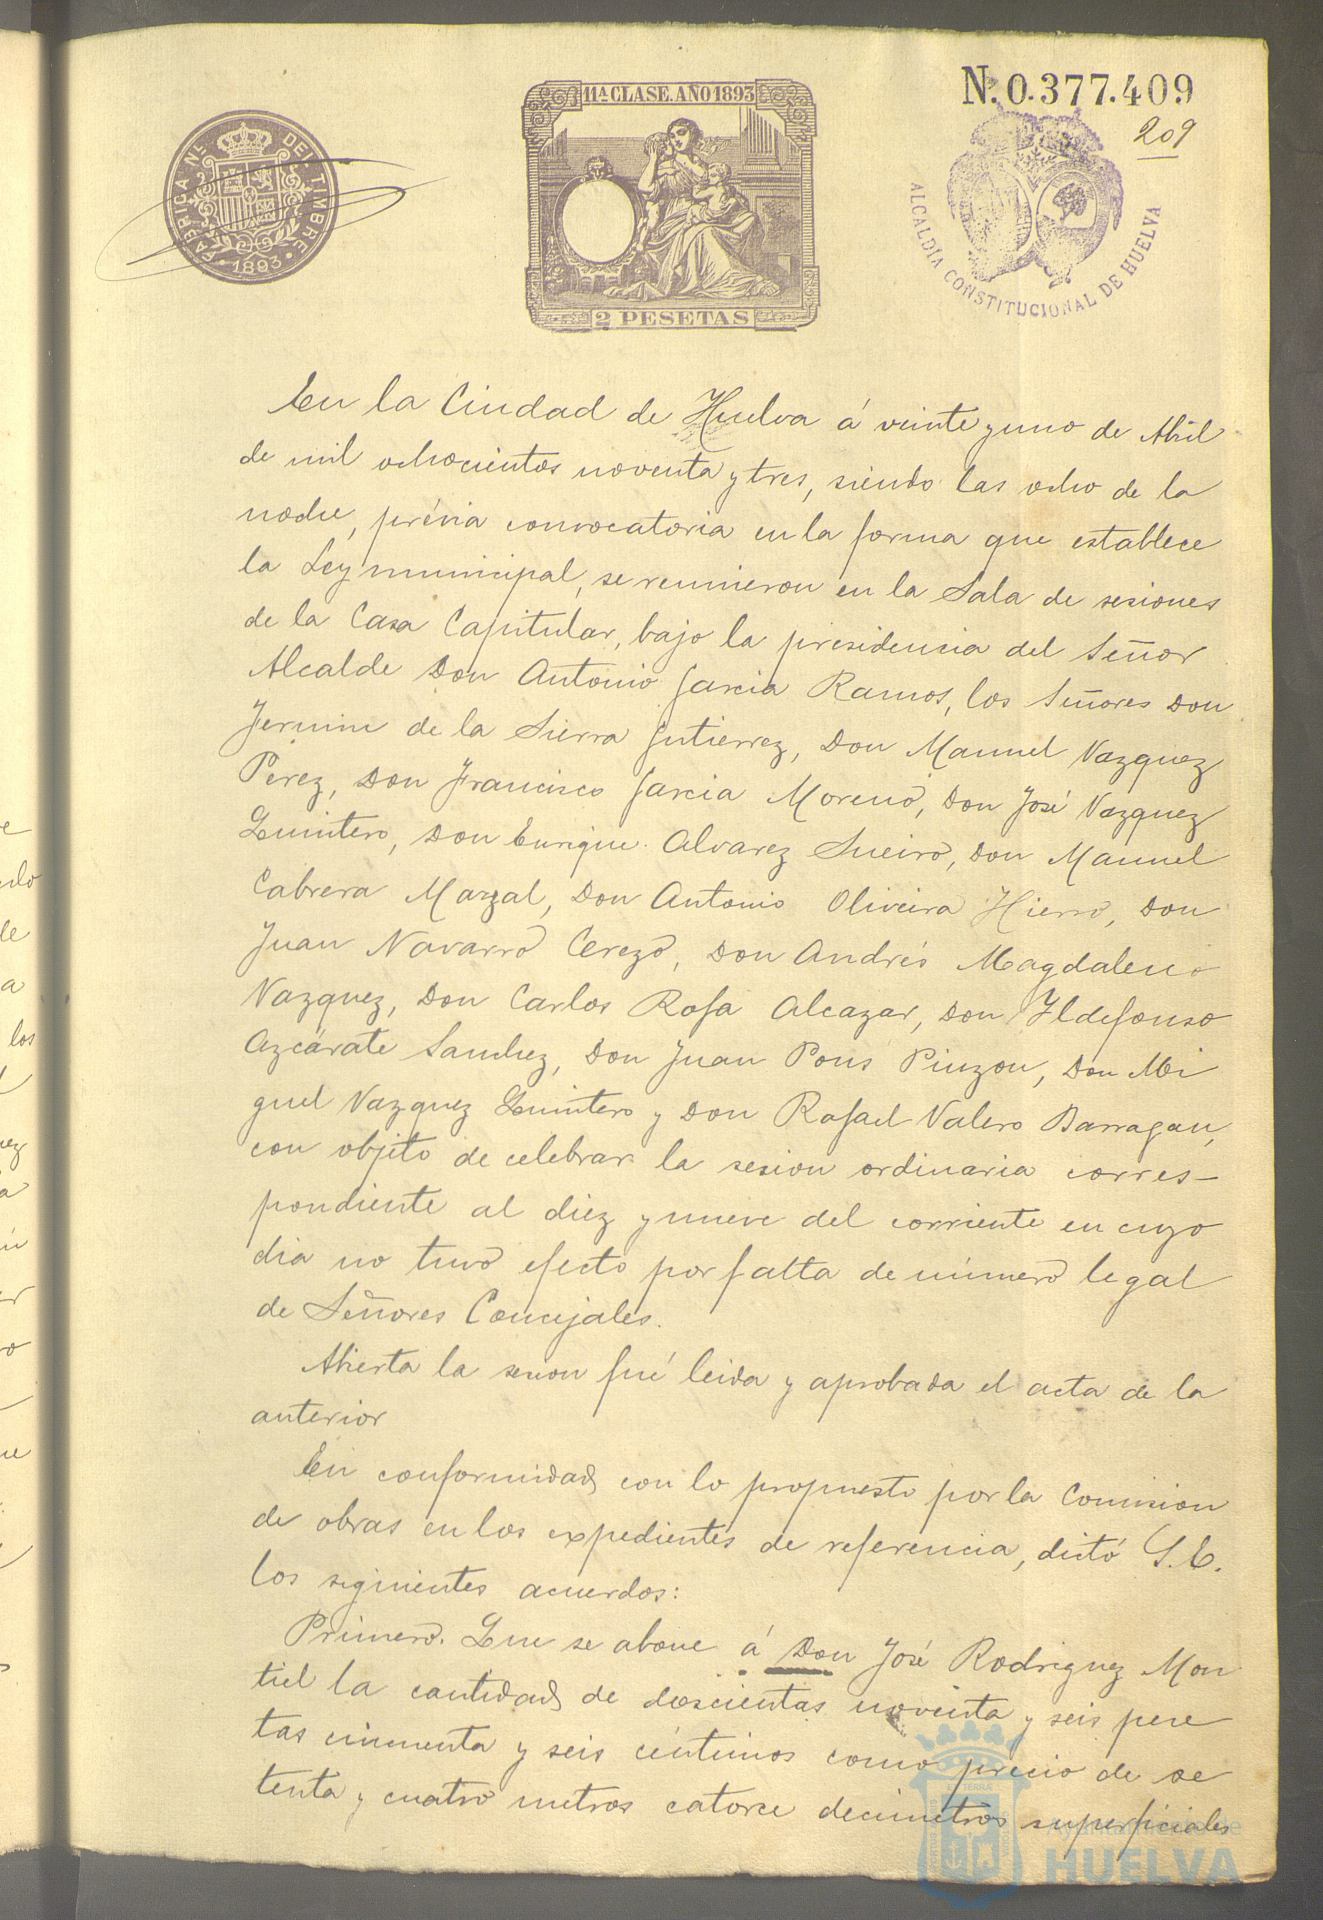 11ª CLASE. AÑO 1893
N.º 0.377.409
209
FABRICA NL. DEL TIMBRE
1893
2 PESETAS
ALCALDÍA CONSTITUCIONAL DE HUELVA
En la Ciudad de Huelva á veinte y uno de Abril
de mil ochocientos noventa y tres, siendo las ocho de la
noche, prévia convocatoria en la forma que establece
la Ley municipal, se reunieron en la Sala de sesiones
de la Casa Capitular, bajo la presidencia del Señor
Alcalde Don Antonio Garcia Ramos, los Señores Don
Fermin de la Sierra Gutierrez, Don Manuel Vazquez
Perez, Don Francisco Garcia Moreno, Don José Vazquez
Quintero, Don Enrique Alvarez Sueiro, Don Manuel
Cabrera Marzal, Don Antonio Oliveira Hierro, Don
Juan Navarro Cerezo, Don Andrés Magdaleno
Vazquez, Don Carlos Rofa Alcazar, Don Ildefonso
Azcárate Sanchez, Don Juan Pons Pinzon, Don Mi
guel Vazquez Quintero y Don Rafael Valero Barragan,
con objeto de celebrar la sesion ordinaria corres-
pondiente al diez y nueve del corriente en cuyo
dia no tuvo efecto por falta de número legal
de Señores Concejales.
Abierta la sesion fué leida y aprobada el acta de la
anterior
En conformidad con lo propuesto por la Comision
de obras en los expedientes de referencia, dictó S.E.
los siguientes acuerdos:
Primero. Que se abone á Don José Rodriguez Mon
tiel la cantidad de doscientas noventa y seis pese
tas cincuenta y seis céntimos como precio de se
tenta y cuatro metros catorce decimetros superficiales
Ayuntamiento de
HUELVA